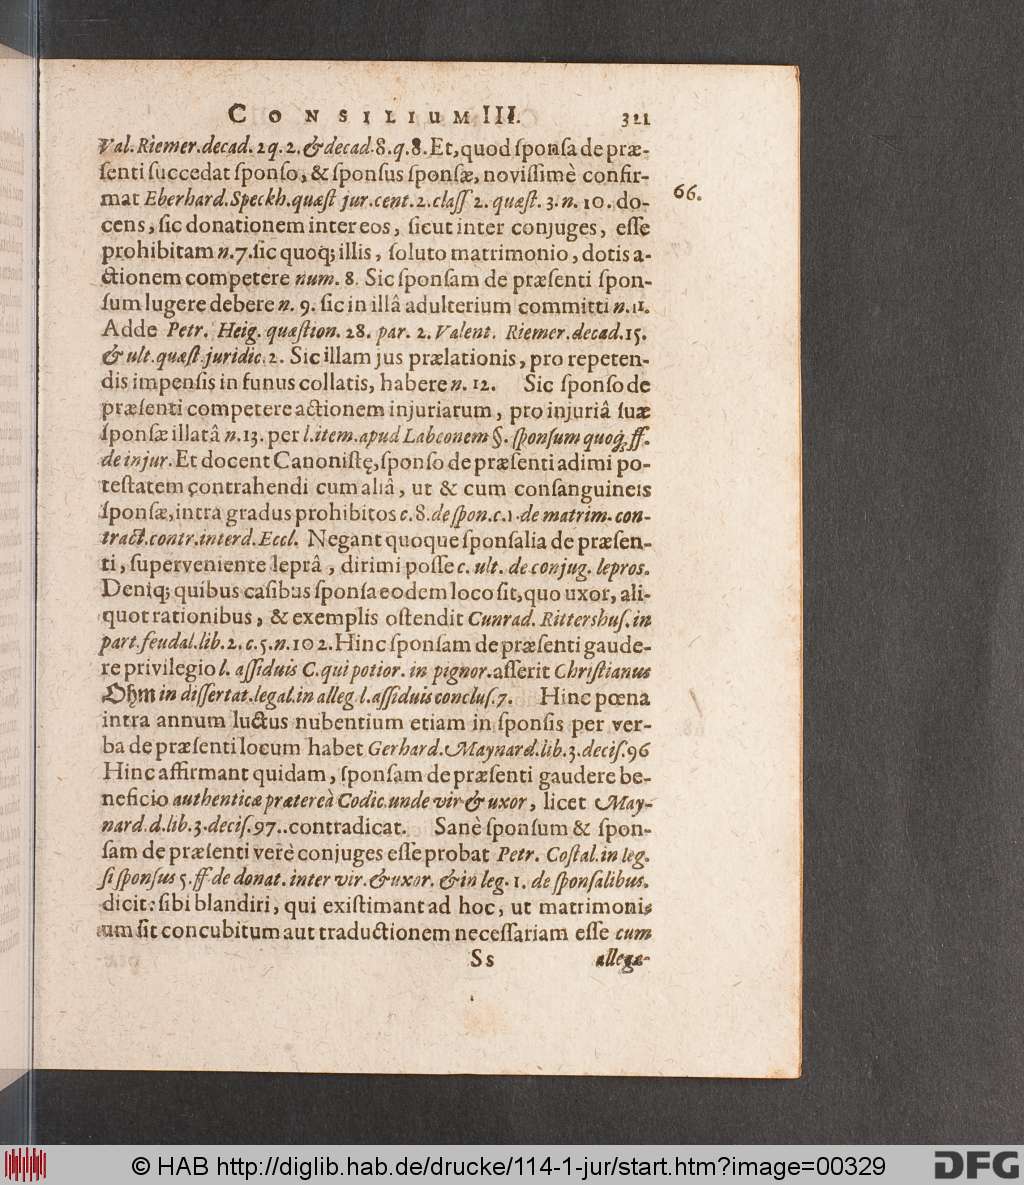 CONSILIUM III. 321
Val. Riemer. decad. 2 q. 2. & decad. 8. q. 8. Et, quod ſponſa de præ-
ſenti ſuccedat ſponſo, & ſponſus ſponſæ, noviſſimè confir-
mat Eberhard. Speckh. quæſt jur. cent. 2. claſſ 2. quæſt. 3. n. 10. do-
66.
cens, ſic donationem inter eos, ſicut inter conjuges, eſſe
prohibitam n. 7. ſic quoq; illis, ſoluto matrimonio, dotis a-
ctionem competere num. 8. Sic ſponſam de præſenti ſpon-
ſum lugere debere n. 9. ſic in illâ adulterium committi n. 11.
Adde Petr. Heig. quæſtion. 28. par. 2. Valent. Riemer. decad. 15.
& ult. quæſt. juridic. 2. Sic illam jus prælationis, pro repeten-
dis impenſis in funus collatis, habere n. 12. Sic ſponſo de
præſenti competere actionem injuriarum, pro injuriâ ſuæ
ſponſæ illatâ n. 13. per l. item. apud Labconem §. ſponſum quoq; ff.
de injur. Et docent Canoniſtę, ſponſo de præſenti adimi po-
teſtatem contrahendi cum aliâ, ut & cum conſanguineis
ſponſæ, intra gradus prohibitos c. 8. de ſpon. c. 1. de matrim. con-
tract. contr. interd. Eccl. Negant quoque ſponſalia de præſen-
ti, ſuperveniente leprâ, dirimi poſſe c. ult. de conjug. lepros.
Deniq; quibus caſibus ſponſa eodem loco ſit, quo uxor, ali-
quot rationibus, & exemplis oſtendit Cunrad. Rittershuſ. in
part. feudal. lib. 2. c. 5. n. 102. Hinc ſponſam de præſenti gaude-
re privilegio l. aſſiduis C. qui potior. in pignor. aſſerit Chriſtianus
Ohm in diſſertat. legal. in alleg. l. aſſiduis concluſ. 7. Hinc pœna
intra annum luctus nubentium etiam in ſponſis per ver-
ba de præſenti locum habet Gerhard. Maynard. lib. 3. deciſ. 96
Hinc affirmant quidam, ſponſam de præſenti gaudere be-
neficio authenticæ prætereà Codic. unde vir & uxor, licet May-
nard. d. lib. 3. deciſ. 97.. contradicat. Sanè ſponſum & ſpon-
ſam de præſenti verè conjuges eſſe probat Petr. Coſtal. in leg.
ſi ſponſus 5. ff de donat. inter vir. & uxor. & in leg. 1. de ſponſalibus.
dicit: ſibi blandiri, qui exiſtimant ad hoc, ut matrimoni-
um ſit concubitum aut traductionem neceſſariam eſſe cum
Ss allega-
© HAB http://diglib.hab.de/drucke/114-1-jur/start.htm?image=00329
DFG